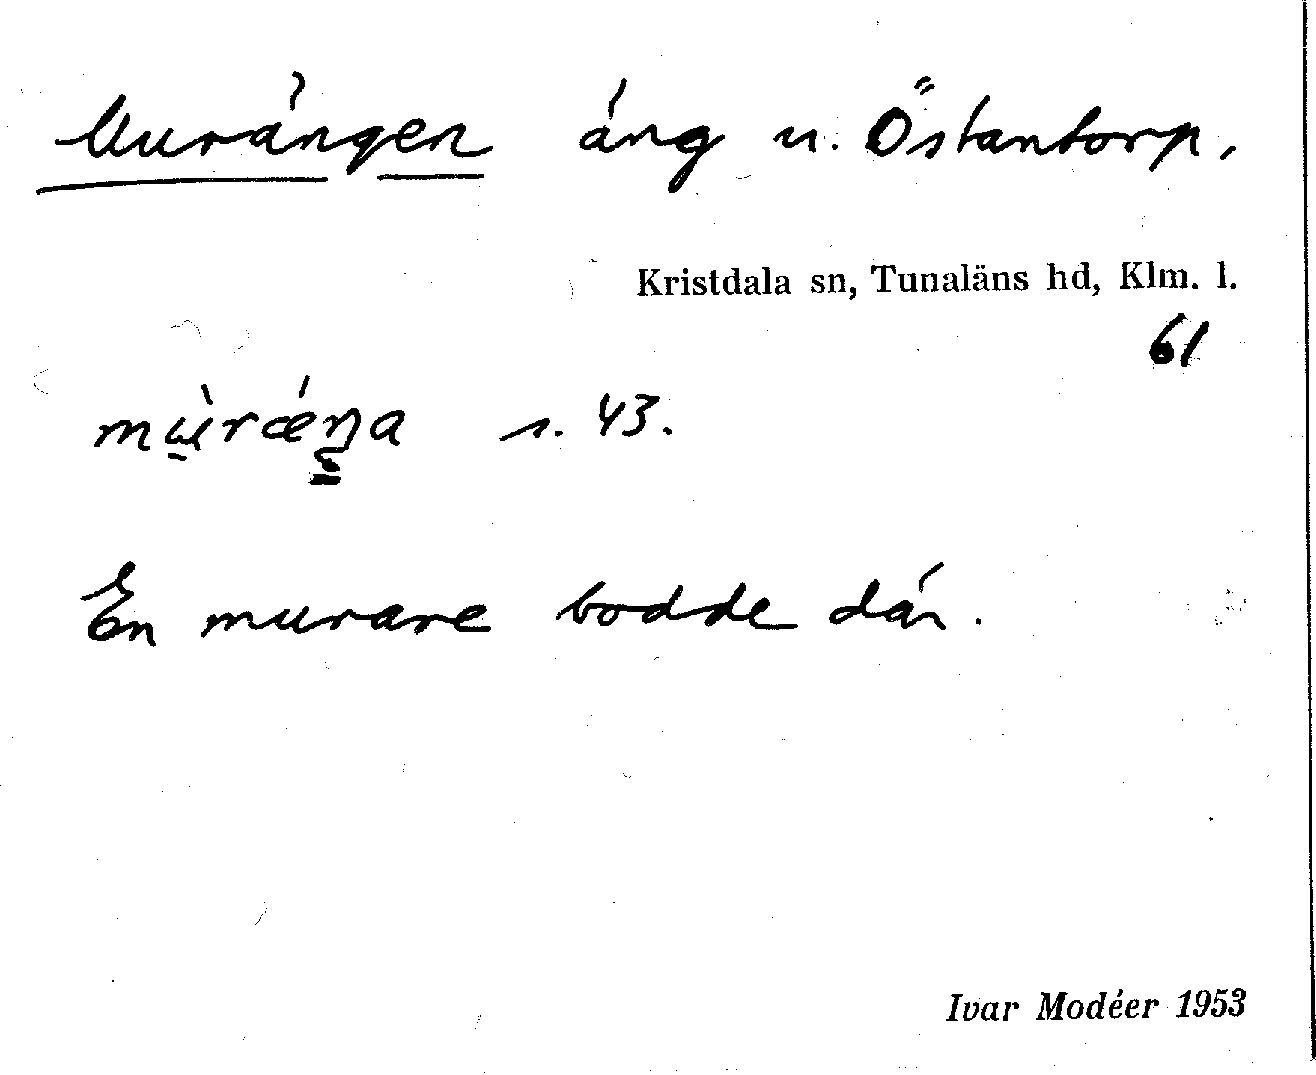 Murängen äng u. Östantorp,
Kristdala sn, Tunaläns hd, Klm. l.
61
mùrǽŋa s. 43.
En murare bodde där.
Ivar Modéer 1953